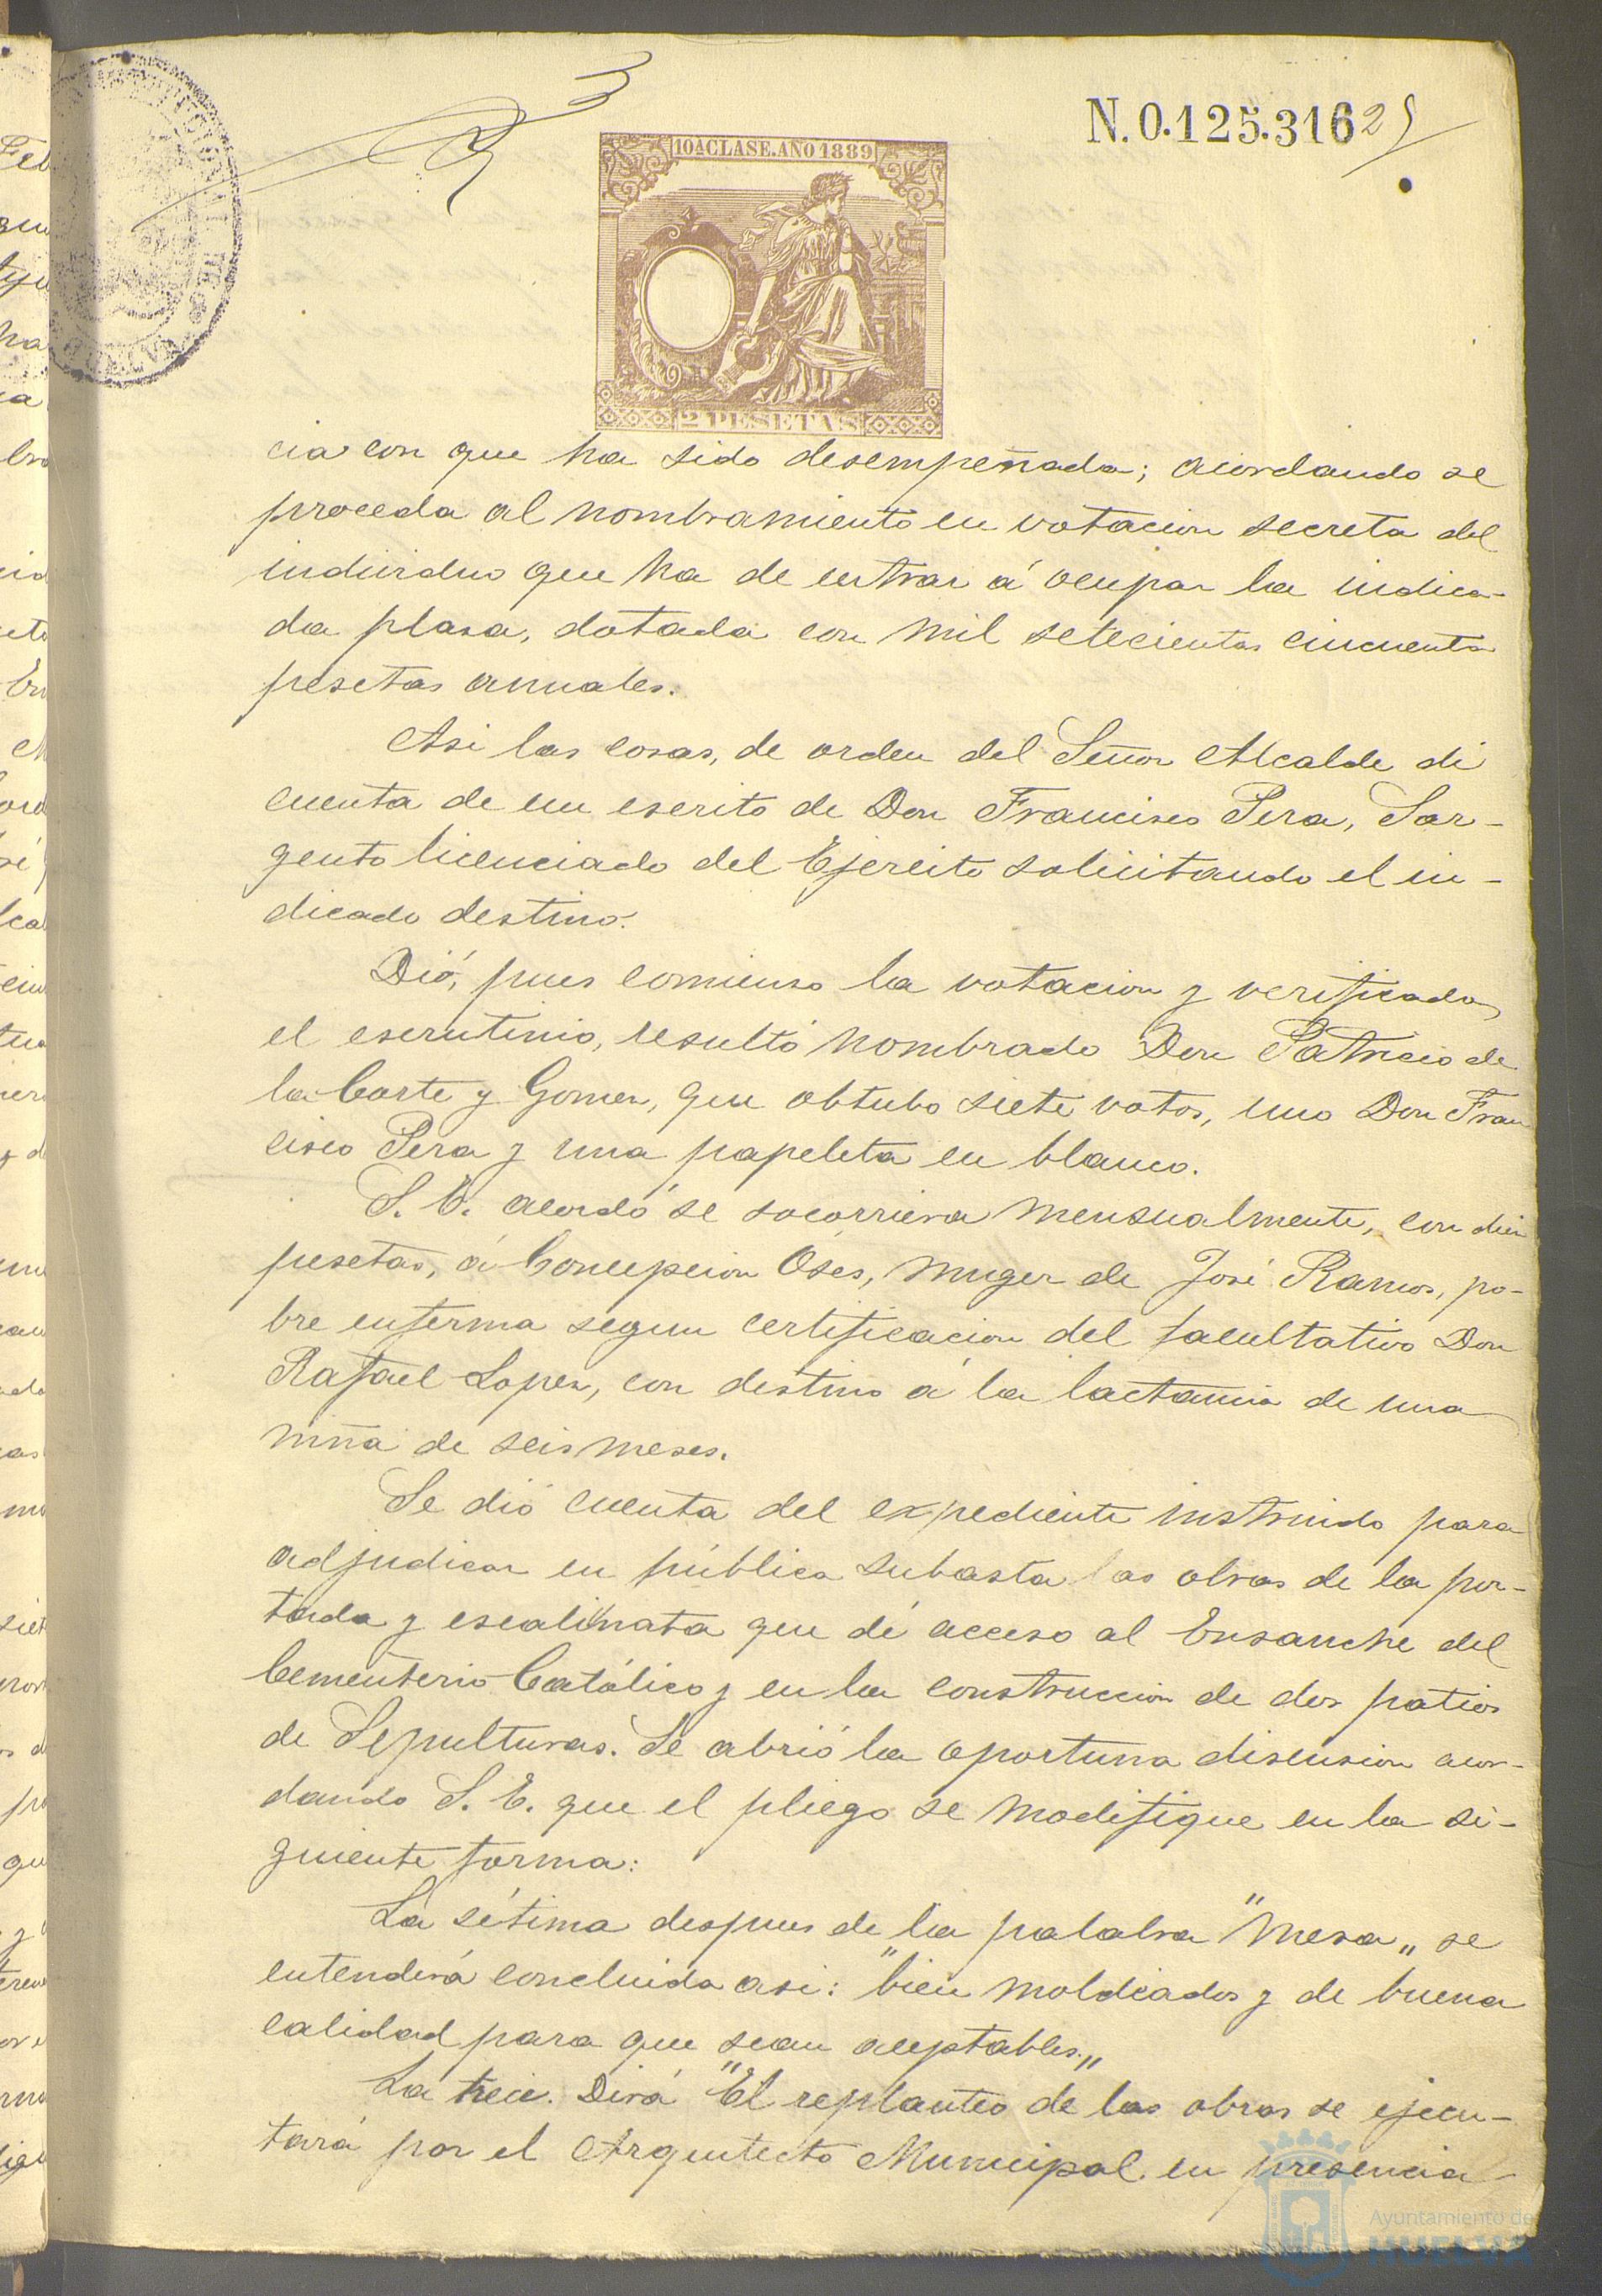 N.0.125.316
25
10A CLASE. AÑO 1889
2 PESETAS
cia con que ha sido desempeñada; acordando se
proceda al nombramiento en votacion secreta del
individuo que ha de entrar á ocupar la indica-
da plasa, dotada con mil setecientas cincuenta
pesetas anuales.
Asi las cosas, de orden del Señor Alcalde di
cuenta de un escrito de Don Francisco Pera, Sar-
gento licenciado del Ejercito solicitando el in-
dicado destino.
Dió, pues comienso la votacion y verificado
el escrutinio, resultó nombrado Don Patricio de
la Corte y Gomez, que obtubo siete votos, uno Don Fran
cisco Pera y una papeleta en blanco.
S. E. acordó se socorriera mensualmente, con diez
pesetas, á Concepcion Osés, muger de José Ramos, po-
bre enferma segun certificacion del facultativo Don
Rafael Lopez, con destino á la lactancia de una
niña de seis meses.
Se dió cuenta del expediente instruido para
adjudicar en pública subasta las obras de la por-
tada y escalinata que dé acceso al Ensanche del
Cementerio Católico y en la construccion de dos patios
de Sepulturas. Se abrió la oportuna discusion acor-
dando S. E. que el pliego se modifique en la si-
guiente forma:
La sétima despues de la palabra "mesa" se
entenderá concluida asi: "bien moldeados y de buena
calidad para que sean aceptables."
La trece. Dirá "El replanteo de las obras se ejecu-
tará por el Arquitecto Municipal en presencia
Ayuntamiento de
HUELVA